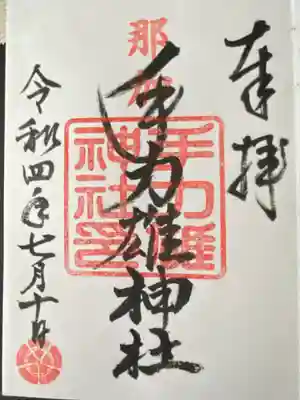 奉拝
那
手力雄神社
手力雄
神社印
令和四年七月十日